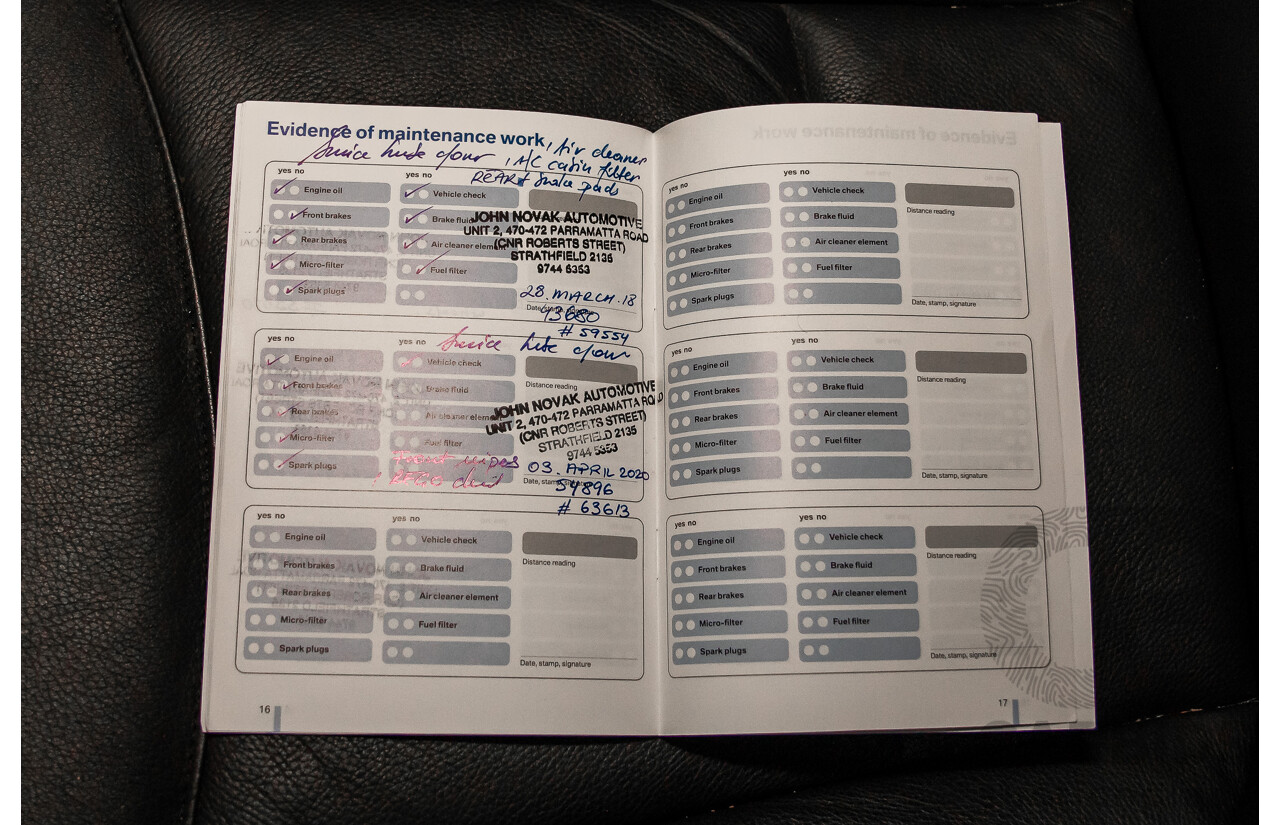 Evidence of maintenance work
, Air cleaner
, A/C cabin filter
REAR brake pads
yes no
yes no
Engine oil
Vehicle check
Front brakes
Brake fluid
Rear brakes
Air cleaner element
Micro-filter
Fuel filter
Spark plugs
JOHN NOVAK AUTOMOTIVE
UNIT 2, 470-472 PARRAMATTA ROAD
(CNR ROBERTS STREET)
STRATHFIELD 2135
9744 5353
28. MARCH. 18
Date, stamp, signature
# 59554
yes no
yes no
Engine oil
Vehicle check
Front brakes
Brake fluid
Rear brakes
Air cleaner element
Micro-filter
Fuel filter
Spark plugs
Distance reading
JOHN NOVAK AUTOMOTIVE
UNIT 2, 470-472 PARRAMATTA ROAD
(CNR ROBERTS STREET)
STRATHFIELD 2135
9744 5353
03. APRIL 2020
Date, stamp, signature
54896
# 63613
yes no
yes no
Engine oil
Vehicle check
Front brakes
Brake fluid
Rear brakes
Air cleaner element
Micro-filter
Fuel filter
Spark plugs
Distance reading
Date, stamp, signature
16
yes no
yes no
Engine oil
Vehicle check
Front brakes
Brake fluid
Rear brakes
Air cleaner element
Micro-filter
Fuel filter
Spark plugs
Distance reading
Date, stamp, signature
yes no
yes no
Engine oil
Vehicle check
Front brakes
Brake fluid
Rear brakes
Air cleaner element
Micro-filter
Fuel filter
Spark plugs
Distance reading
Date, stamp, signature
yes no
yes no
Engine oil
Vehicle check
Front brakes
Brake fluid
Rear brakes
Air cleaner element
Micro-filter
Fuel filter
Spark plugs
Distance reading
Date, stamp, signature
17